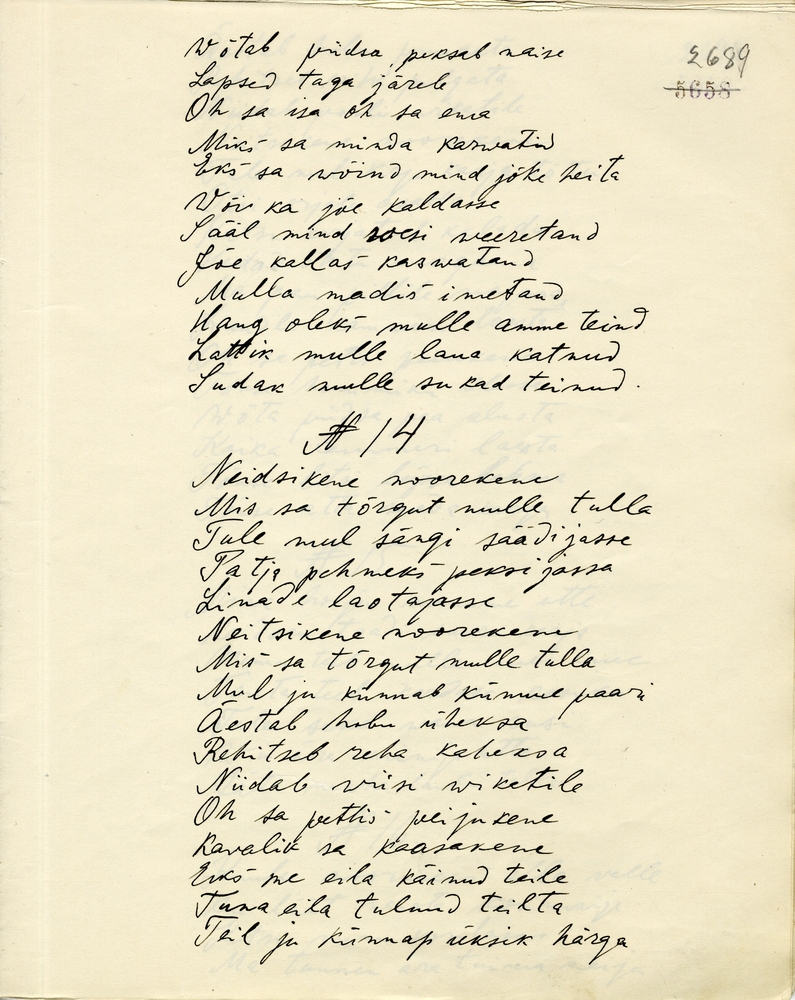 2689
5658
Wõtab püidsa, peksab naise
Lapsed taga järele
Oh sa isa oh sa ema
Miks sa minda kasvatid
Eks sa wõind mind jõke heita
Või ka jõe kaldasse
Sääl mind roosi weeretand
Jõe kallas kaswatand
Mulla madis imetand
Hang oleks mulle amme teind
Lattik mulle laua katnud
Sudak mulle sukad teinud.
№ 14
Neidsikene noorekene
Mis sa tõrgut mulle tulla
Tule mul sängi säädijasse
Patja pehmeks peksijassa
Linade laotajasse
Neitsikene noorekene
Mis sa tõrgut mulle tulla
Mul ju künnab kümme paari
Äestab hobu üheksa
Rehitseb reha kaheksa
Niidab wiisi wiketile
Oh sa pettis peijukene
Kavalik sa kaasakene
Eks me eila käinud teile
Tuna eila tulnud teilta
Teil ju künnap üksik härga